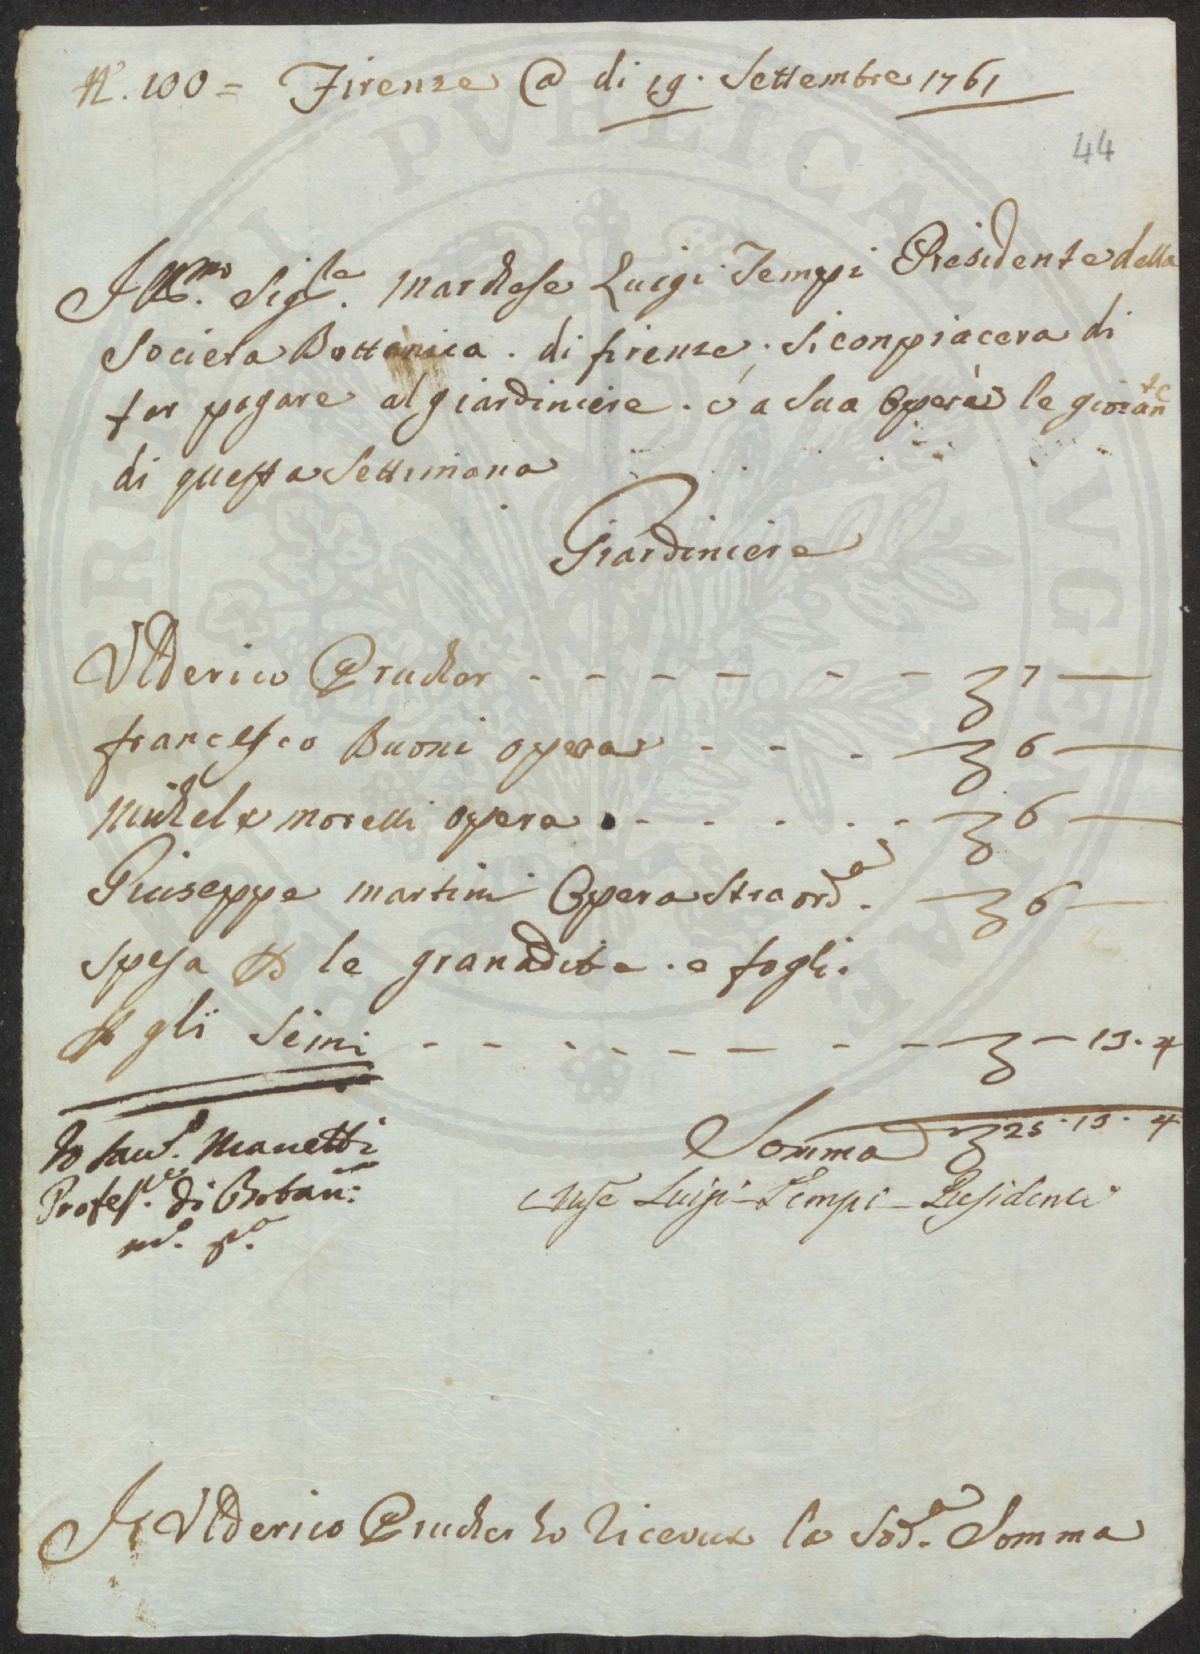 N.º 100 = Firenze @ di 19. Settembre 1761
44
Ill.mo Sig.re Marchese Luigi Tempi Presidente della
Società Bottanica. di firenze, si conpiacera di
far pagare al giardiniere. o a sua Opere le giornate
di questa Settimana
Giardiniere
Ulderico Prucker - - - - - - 7 —
francesco Buoni opera - - - 6 —
Michele morelli opera - - - - - 6 —
Giuseppe martini Opera Straord.a 6 —
Spesa le e fogli.
gli Semi - - - - - - - - - — 13. 4
Somma 25. 13. 4
Io Sav.o Manetti
Profes.re di Botan:
m.o p.o
Luigi Tempi Presidente
Io Ulderico Prucker ho riceuuto la Sod.a Somma